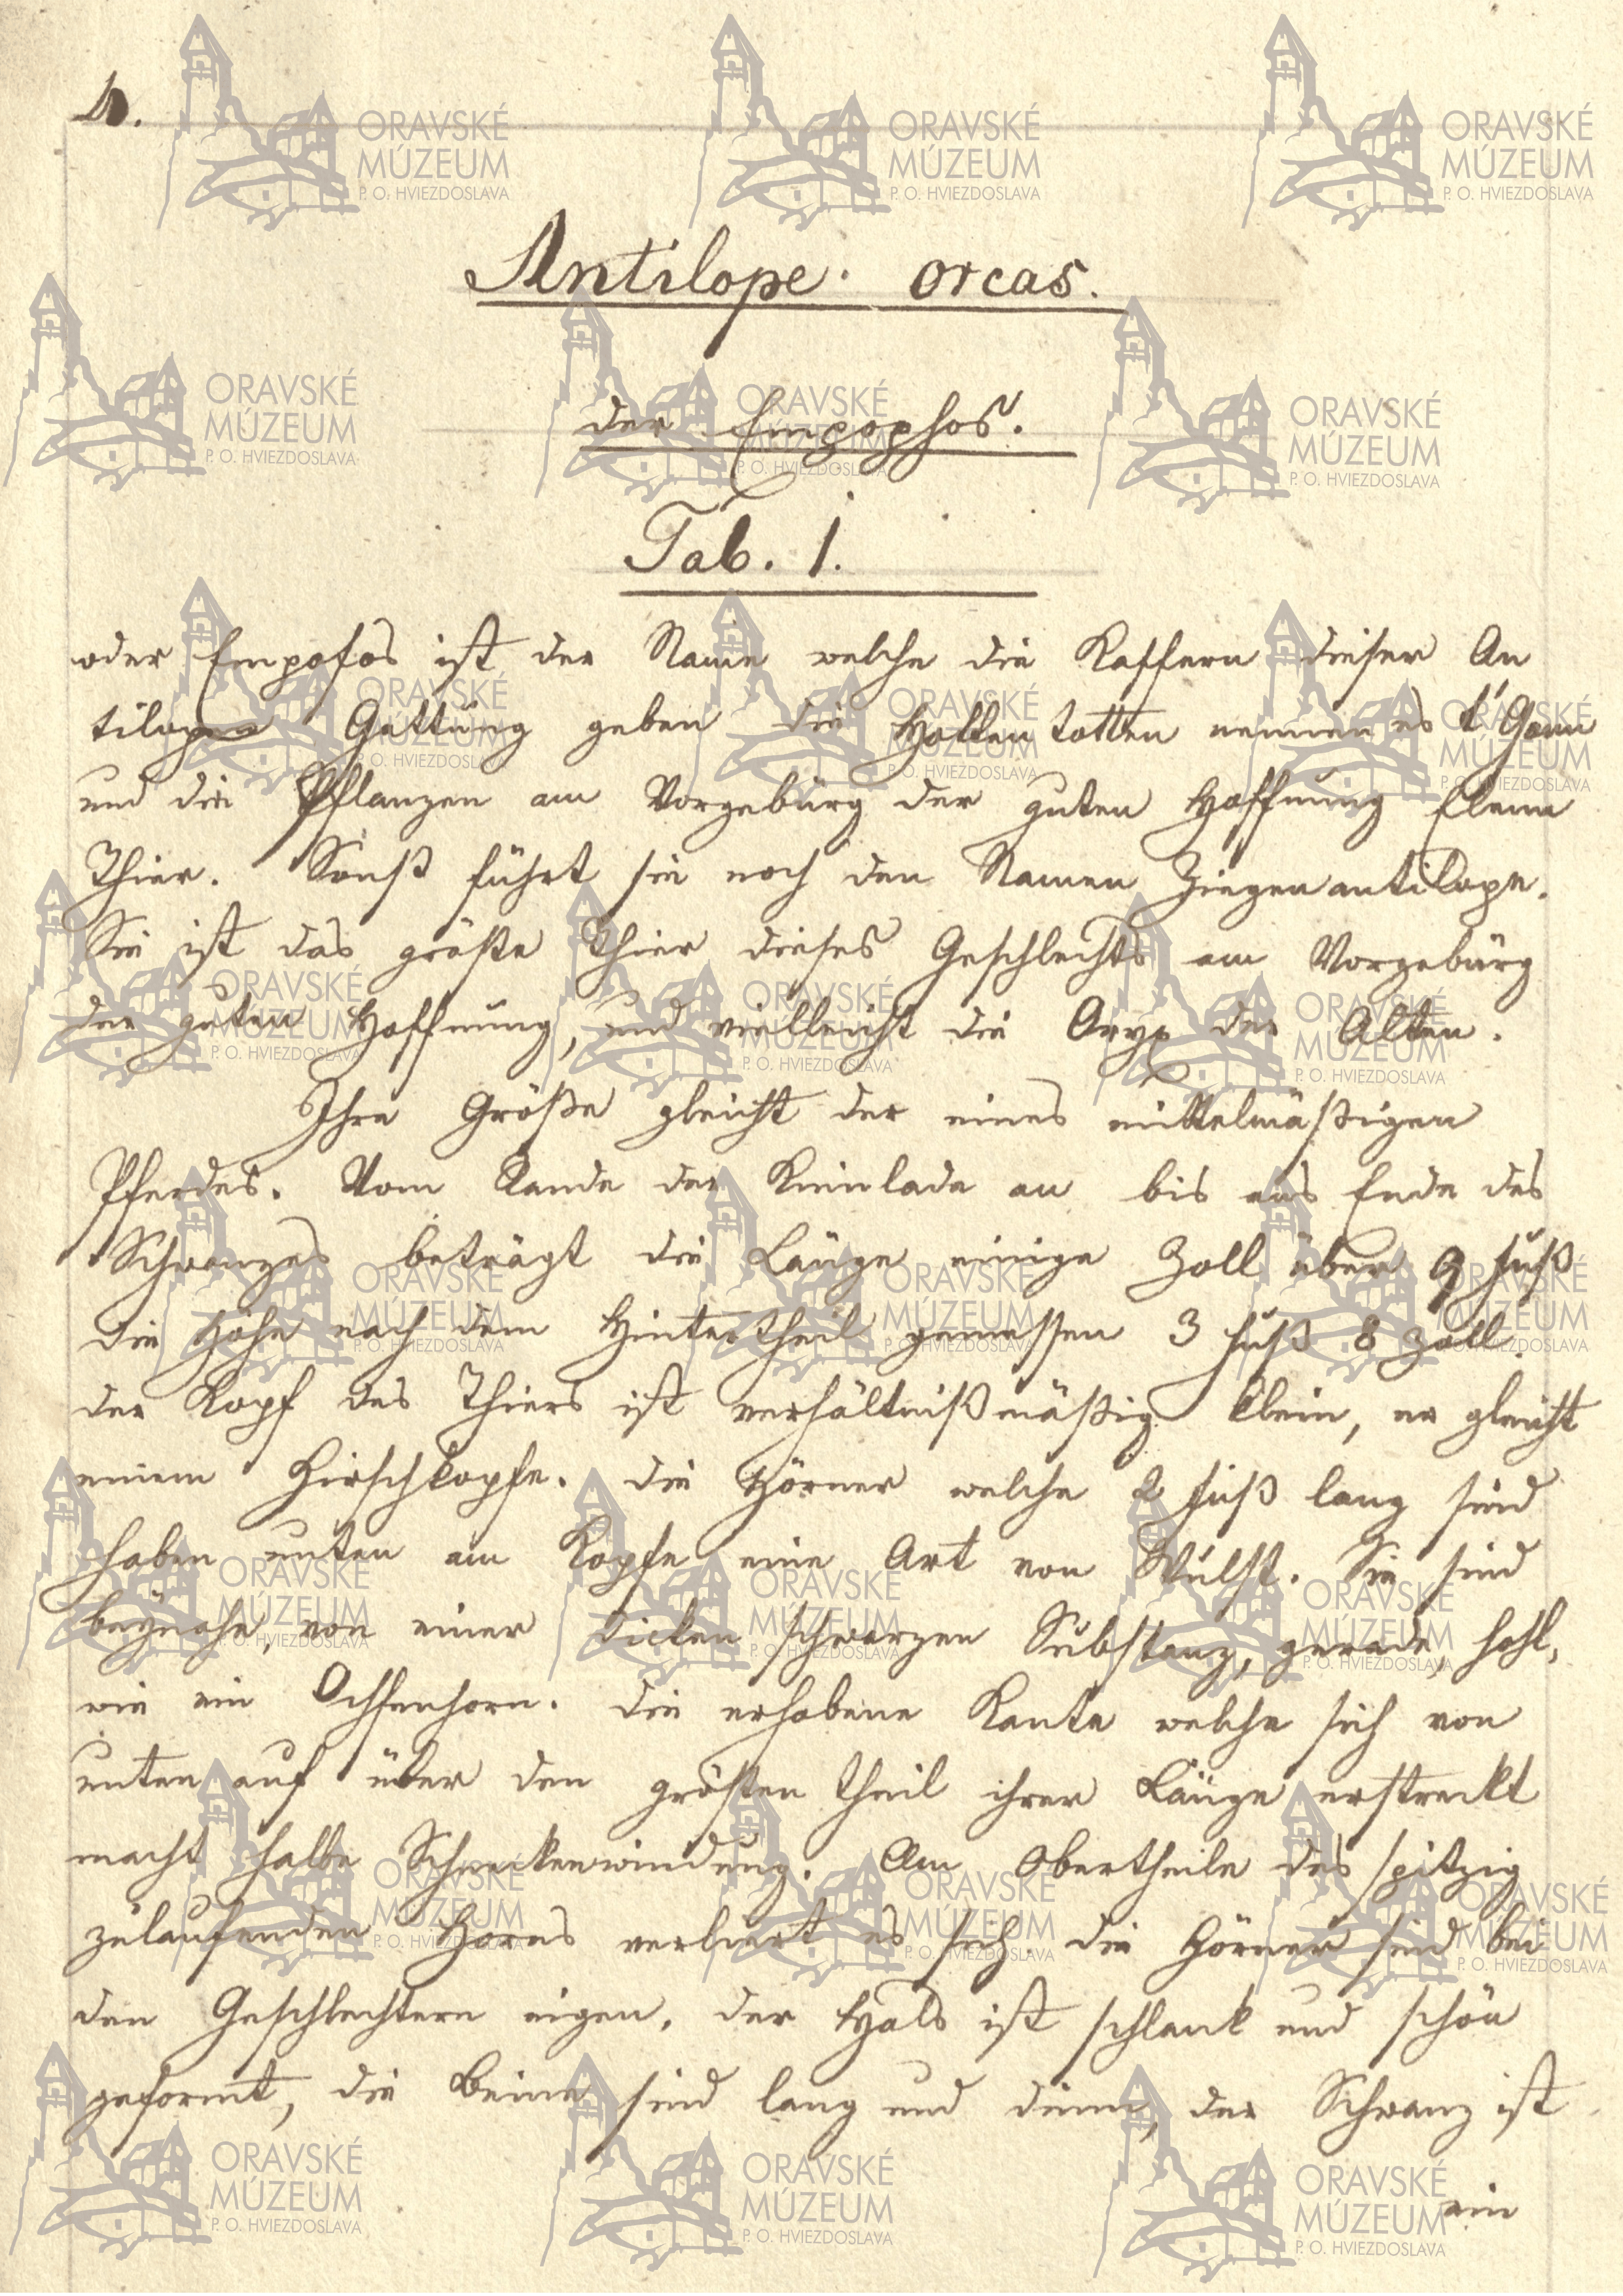 Antilope orcas.
der Empophos.
Tab. 1.
oder Empofos ist der Name welche die Kaffern dieser An
tilopen Gattung geben die Hottentotten nennen es t'Gann
und die Pflanzen am Vorgebürg der guten Hoffnung Elenn
Thier. Sonst führt sie noch den Namen Ziegenantilope.
Sie ist das größte Thier dieses Geschlechts am Vorgebürg
der guten Hoffnung, und vielleicht die Oryx der Alten.
Ihre Größe gleicht der eines mittelmäßigen
Pferdes. Vom Rande der Kinnlade an bis ans Ende des
Schwanzes beträgt die Länge einige Zoll über 9 fuß
die Höhe nach dem Hintertheil gemessen 3 fuß 8 Zoll.
der Kopf des Thiers ist verhältnißmäßig klein, er gleicht
einem Hirschkopfe. die Hörner welche 2 fuß lang sind
haben unten am Kopfe eine Art von Wulst. Sie sind
beynahe, von einer dicken schwarzen Substanz, gerade, hohl,
wie ein Ochsenhorn. die erhobene Kante welche sich von
unten auf über den größten theil ihrer Länge erstreckt
macht halbe Schneckenwindung. Am Obertheile des spitzig
zulaufenden Horns verliert es sich. die Hörner sind bei
den Geschlechtern eigen. der Hals ist schlank und schön
geformt, die Beine sind lang und dünn, der Schwanz ist
ein
ORAVSKÉ
MÚZEUM
P. O. HVIEZDOSLAVA